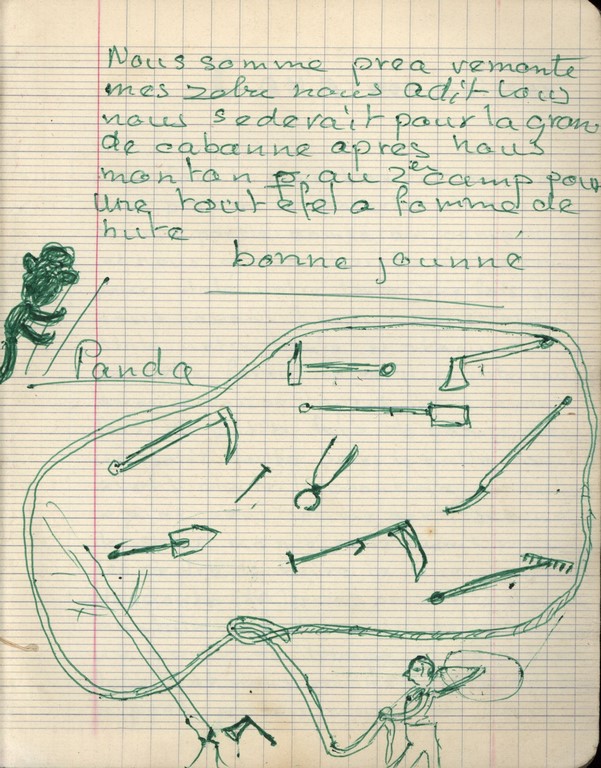 Nous somme prea remonte
mes zebre nous adit tous
nous sederait pour la gran
de cabanne apres nous
montan au 2em camp pour
une tout a forme de
hute
bonne jounné
Panda